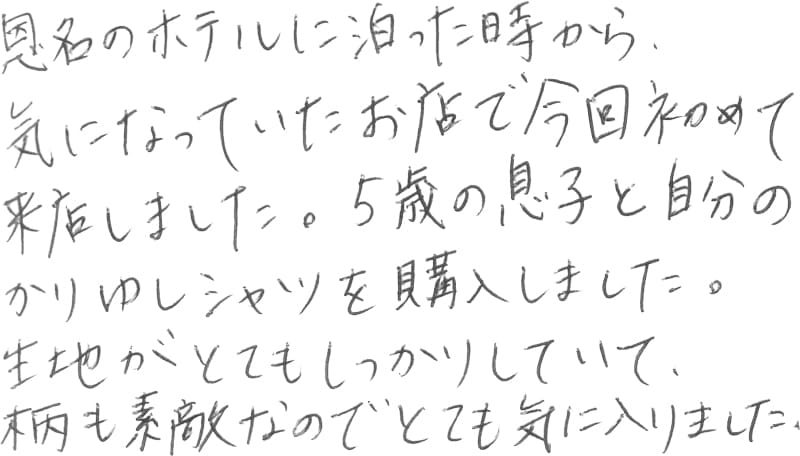 恩名のホテルに泊った時から、
気になっていたお店で今回初めて
来店しました。5歳の息子と自分の
かりゆしシャツを購入しました。
生地がとてもしっかりしていて、
柄も素敵なのでとても気に入りました。